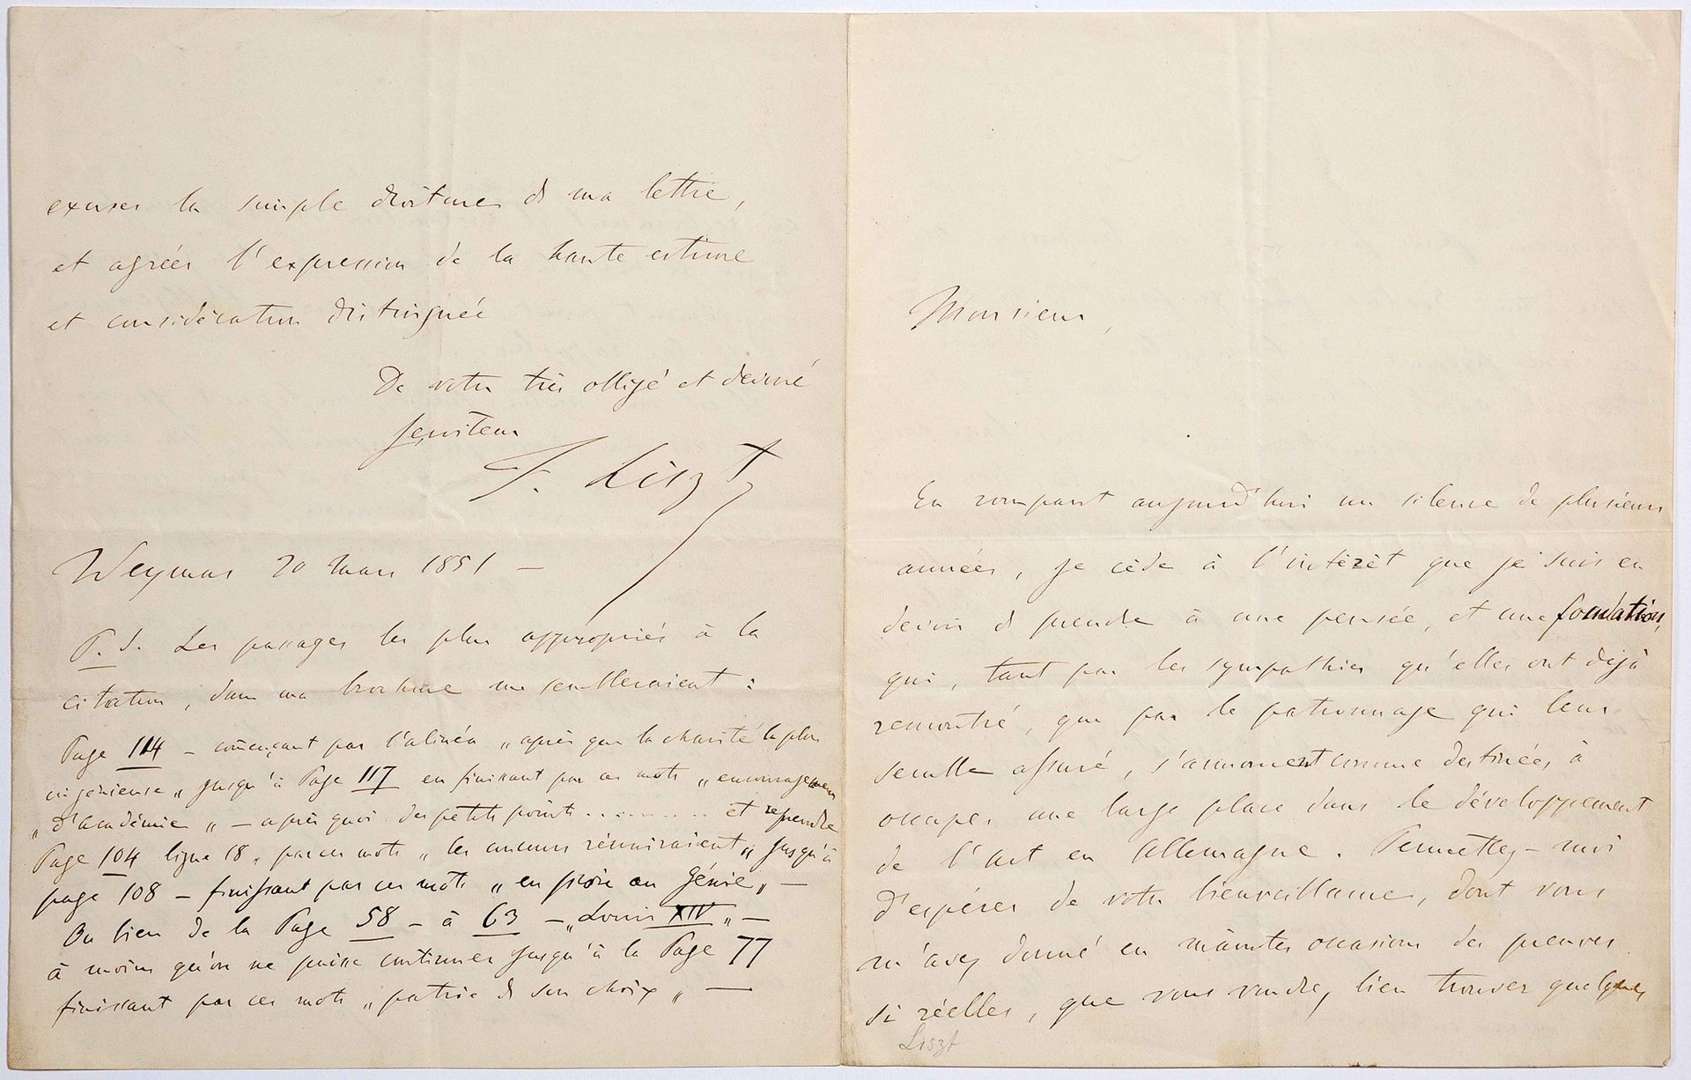 Monsieur,
En rompant aujourd'hui un silence de plusieurs
années, je cède à l'intérêt que je suis en
devoir de prendre à une pensée, et une fondation,
qui, tant par les sympathies qu'elles ont déjà
rencontré, que par le patronnage qui leur
semble assuré, s'annoncent comme destinées à
occuper une large place dans le développement
de l'art en Allemagne. Permettez-moi
d'espérer de votre bienveillance, dont vous
m'avez donné en maintes occasions des preuves
si réelles, que vous voudrez bien trouver quelques
Liszt
excuser la simple droiture de ma lettre,
et agréer l'expression de la haute estime
et considération distinguée
De votre très obligé et dévoué
serviteur
F. Liszt
Weymar 20 Mars 1851 –
P. S. Les passages les plus appropriés à la
citation, dans ma brochure me sembleraient :
Page 114 – començant par l'alinéa „après que la charité la plus
ingénieuse „ jusqu'à Page 117 en finissant par ces mots „encouragemens
„d'académie „ – après quoi des petits points .......... et reprendre
Page 104 ligne 18, par ces mots „les uns réuniraient„ jusqu'à
page 108 – finissant par ces mots „en gloire au Génie„ –
Ou bien de la Page 58 – à 63 – „Louis XIV„ –
à moins qu'on ne puisse continuer jusqu'à la Page 77
finissant par ces mots „patrie de son choix„ –